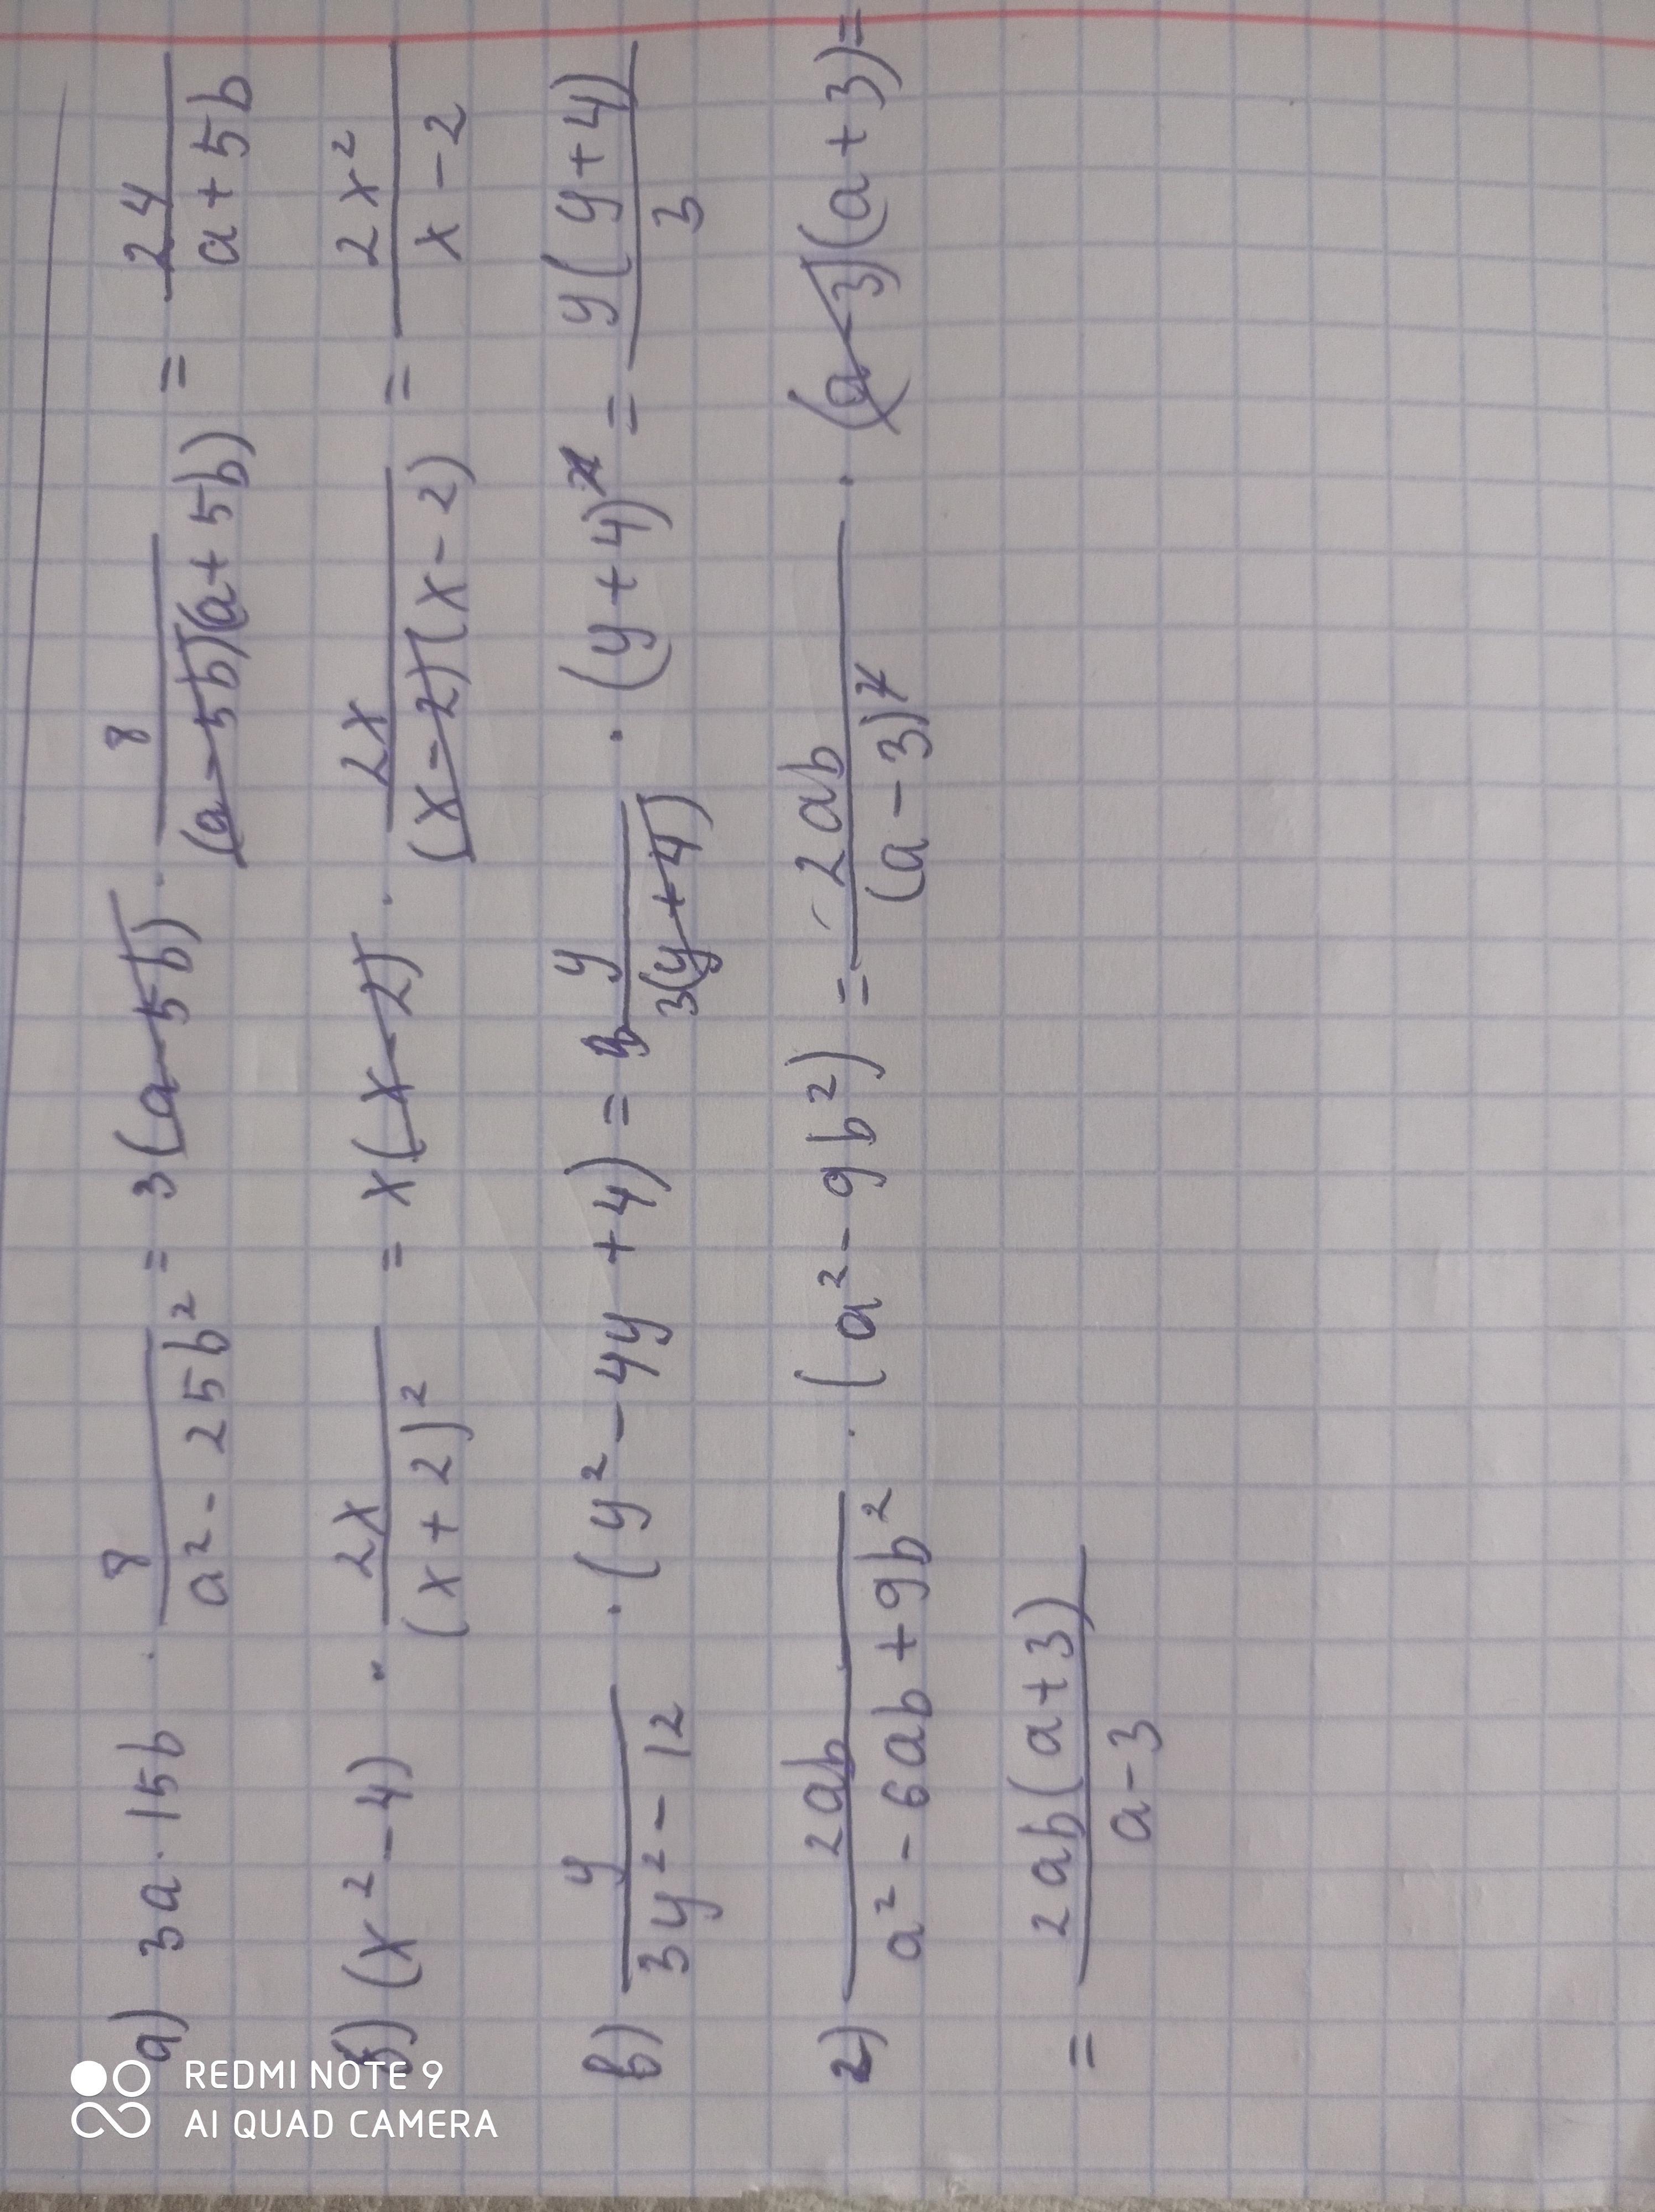 а) 3a · 15b · 8/(a² - 25b²) = 3(a - 5b) · 8/((a - 5b)(a + 5b)) = 24/(a + 5b)
б) (x² - 4) · 2x/(x + 2)² = x(x - 2) · 2x/((x - 2)(x - 2)) = 2x²/(x - 2)
в) y/(3y² - 12) · (y² - 4y + 4) = y/(3(y + 4)) · (y + 4)² = y(y + 4)/3
г) 2ab/(a² - 6ab + 9b²) · (a² - 9b²) = 2ab/(a - 3)² · (a - 3)(a + 3) =
= 2ab(a + 3)/(a - 3)
REDMI NOTE 9
AI QUAD CAMERA